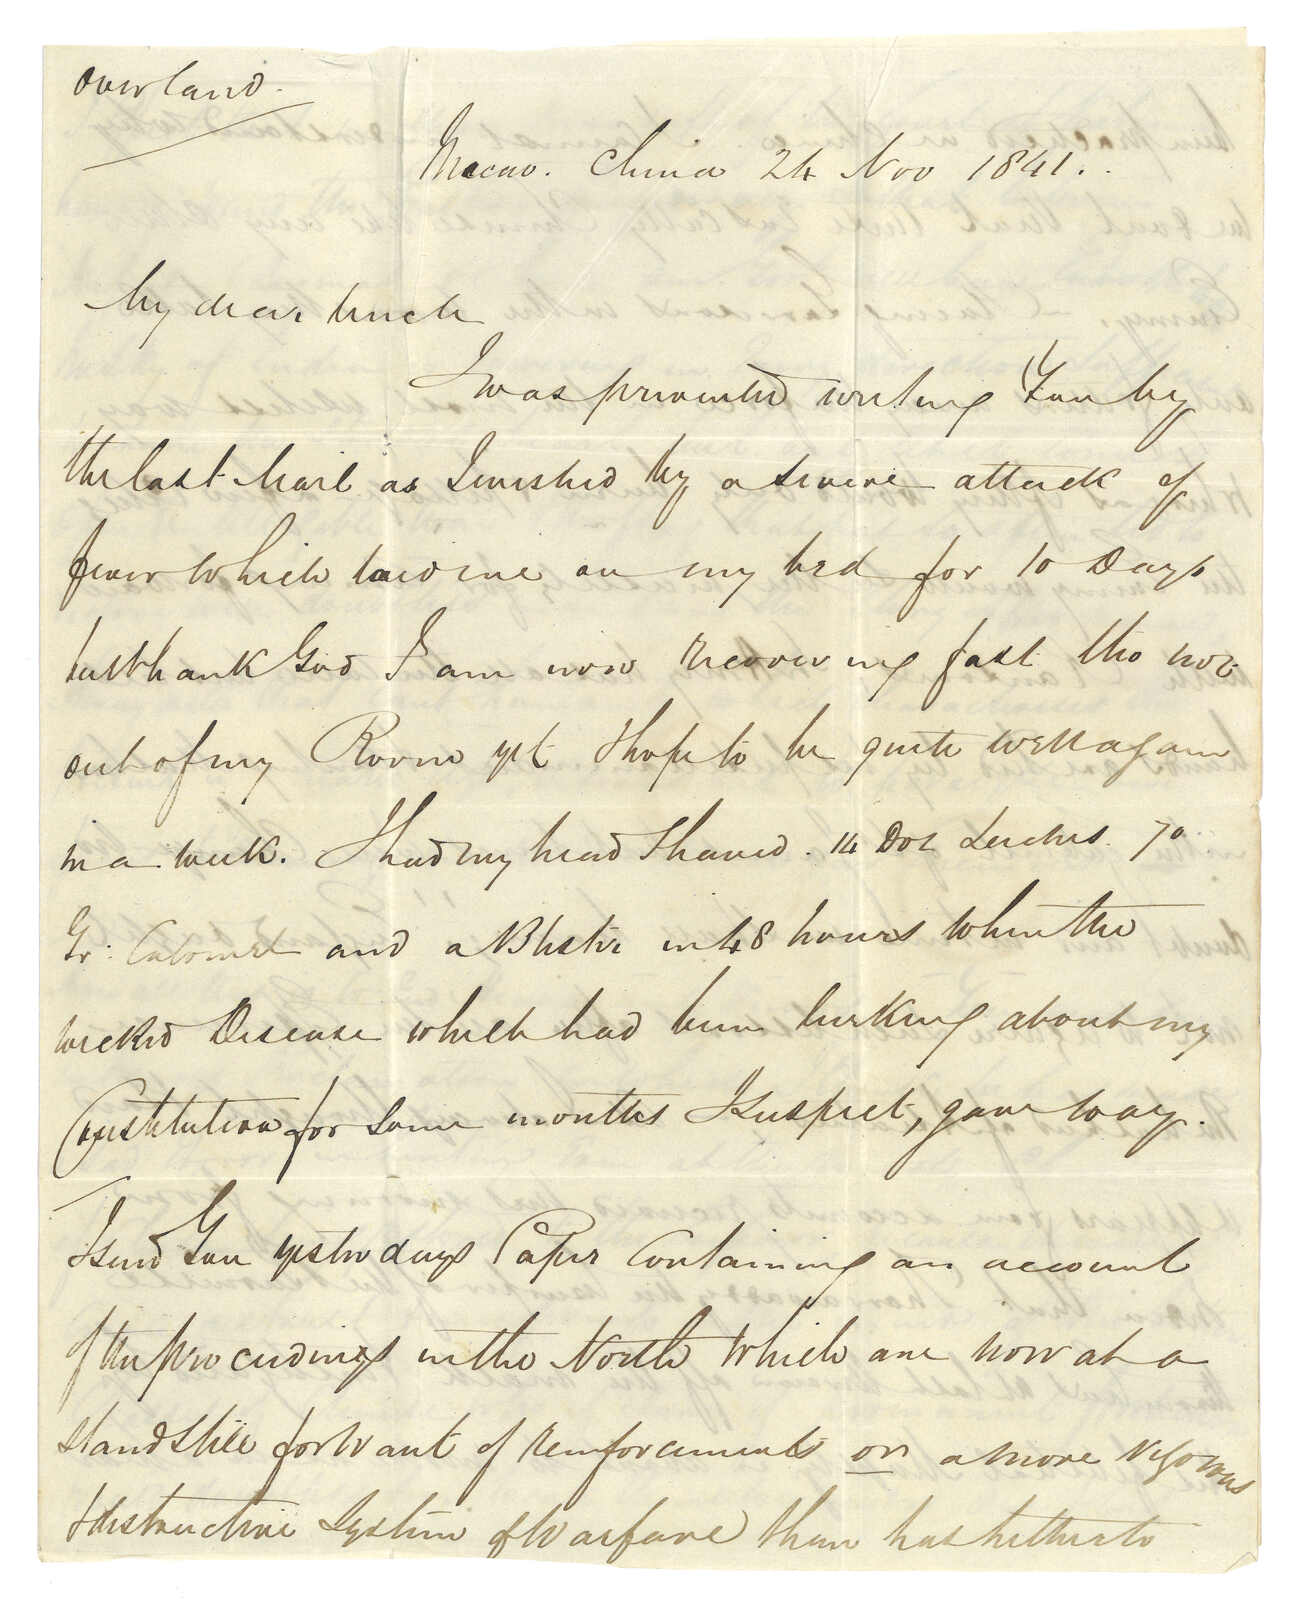 Overland.
Macao. China 24 Nov 1841.
My dear Uncle
I was prevented writing You by
the last Mail as I wished by a severe attack of
fever which laid me on my bed for 10 Days
but thank God I am now recovering fast tho not
out of my Room yet. I hope to be quite well again
in a week. I had my head Shaved. 14 Doz Leeches. 70
Gr: Calomel and a Blister in 48 hours when the
wicked Disease which had been lurking about my
Constitution for some months I suspect, gave way.
I send You yesterdays Paper Containing an account
of the proceedings in the North which are now at a
stand still for want of reinforcements or a more vigorous
& destructive System of Warfare than has hitherto